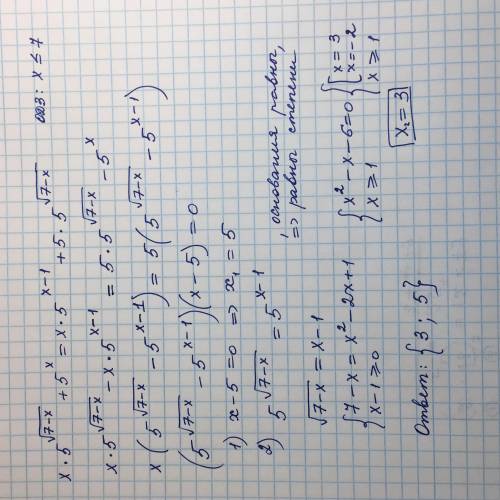 x·5^{√(7-x)} + 5^x = x·5^{x-1} + 5·5^{√(7-x)}   ОДЗ: x ≤ 7
x·5^{√(7-x)} - x·5^{x-1} = 5·5^{√(7-x)} - 5^x
x(5^{√(7-x)} - 5^{x-1}) = 5(5^{√(7-x)} - 5^{x-1})
(5^{√(7-x)} - 5^{x-1})(x-5) = 0
1) x-5=0 => x₁ = 5
2) 5^{√(7-x)} = 5^{x-1}, основания равны,
=> равны степени
√(7-x) = x-1
{7-x = x²-2x+1   {x²-x-6=0   {[x=3
x=-2
x-1≥0   x≥1   x≥1
x₂=3
Ответ: {3; 5}